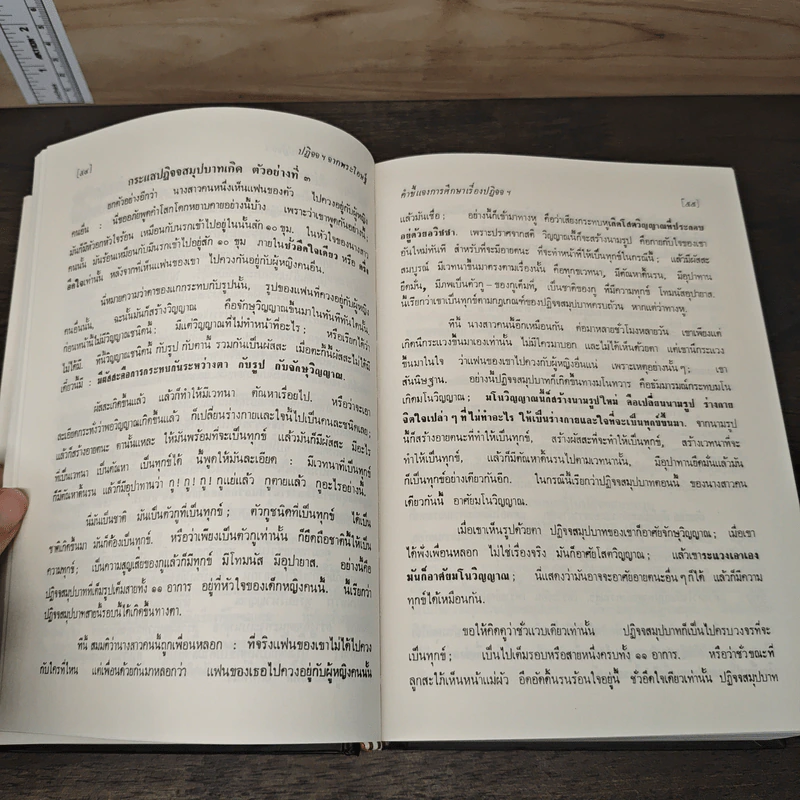 [๔๔]
ปฏิจจ ฯ จากพระโอษฐ์
กระแสปฏิจจสมุปบาทเกิด ตัวอย่างที่ ๓
ยกตัวอย่างอีกว่า นางสาวคนหนึ่งเห็นแฟนของตัว ไปควงอยู่กับผู้หญิง
คนอื่น : นี่ขออภัยพูดคำโสกโดกหยาบคายอย่างนี้บ้าง เพราะว่าเขาพูดกันอย่างนี้;
มันก็มีหัวอกหัวใจร้อน เหมือนกับนรกเข้าไปอยู่ในนั้นสัก ๑๐ ขุม. ในหัวใจของนางสาว
คนนั้น มันร้อนเหมือนกับมีนรกเข้าไปอยู่สัก ๑๐ ขุม ภายในชั่วอึดใจเดียว หรือ ครึ่ง
อึดใจเท่านั้น หลังจากที่เห็นแฟนของเขา ไปควงกันอยู่กับผู้หญิงคนอื่น.
นี่หมายความว่าตาของแกกระทบกับรูปนั้น, รูปของแฟนที่ควงอยู่กับผู้หญิง
คนอื่นนั้น, ฉะนั้นมันก็สร้างวิญญาณ คือจักษุวิญญาณขึ้นมาในทันทีทันใดนั้น,
ก่อนหน้านี้ไม่มีวิญญาณชนิดนี้ ; มีแต่วิญญาณที่ไม่ทำหน้าที่อะไร ; หรือเรียกได้ว่า
ไม่ได้มี. ทีนี้วิญญาณชนิดนี้ กับรูป กับตานี้ รวมกันเป็นผัสสะ เมื่อตะกี้นั้นผัสสะไม่ได้มี
เดี๋ยวนี้มี : มีผัสสะคือการกระทบกันระหว่างตา กับรูป กับจักษุวิญญาณ.
ผัสสะเกิดขึ้นแล้ว แล้วก็ทำให้มีเวทนา ตัณหาเรื่อยไป. หรือว่าจะเอา
ละเอียดกระทั่งว่าพอวิญญาณเกิดขึ้นแล้ว ก็เปลี่ยนร่างกายและใจนี้ไปเป็นคนละชนิดเลย;
แล้วก็สร้างอายตนะ ตานั้นแหละ ให้มันพร้อมที่จะเป็นทุกข์ แล้วมันก็มีผัสสะ มีอะไร
ที่เป็นเวทนา เป็นตัณหา เป็นทุกข์ได้ นี้พูดให้มันละเอียด : มีเวทนาที่เป็นทุกข์
ก็มีตัณหาดิ้นรน แล้วก็มีอุปาทานว่า กู! กู! กู! กูแย่แล้ว กูตายแล้ว กูอะไรอย่างนี้.
นี่มันเป็นชาติ มันเป็นตัวกูที่เป็นทุกข์ ; ตัวกูชนิดที่เป็นทุกข์ ได้เป็น
ชาติเกิดขึ้นมา มันก็ต้องเป็นทุกข์. หรือว่าเพียงเป็นตัวกูเท่านั้น ก็ยึดถือชาตินี้ให้เป็น
ความทุกข์ ; เป็นความสูญเสียของกูแล้วก็มีทุกข์ มีโทมนัส มีอุปายาส. อย่างนี้คือ
ปฏิจจสมุปบาทที่เต็มรูปเต็มสายทั้ง ๑๑ อาการ อยู่ที่หัวใจของเด็กหญิงคนนี้. นี้เรียกว่า
ปฏิจจสมุปบาทสายนี้รอบนี้ได้เกิดขึ้นทางตา.
ทีนี้ สมมติว่านางสาวคนนี้ถูกเพื่อนหลอก : ที่จริงแฟนของเขาไม่ได้ไปควง
กับใครที่ไหน แต่เพื่อนด้วยกันมาหลอกว่า แฟนของเธอไปควงอยู่กับผู้หญิงคนนั้น
คำชี้แจงการศึกษาเรื่องปฏิจจ ฯ
[๔๕]
แล้วมันเชื่อ ; อย่างนี้ก็เข้ามาทางหู คือว่าเสียงกระทบหูเกิดโสตวิญญาณที่ประกอบ
อยู่ด้วยอวิชชา. เพราะปราศจากสติ วิญญาณนี้ก็จะสร้างนามรูป คือกายกับใจของเขา
อันใหม่ทันที สำหรับที่จะมีอายตนะ ที่จะทำหน้าที่ให้เป็นทุกข์ในกรณีนี้ ; แล้วมีผัสสะ
สมบูรณ์ มีเวทนาขึ้นมาตรงตามเรื่องนั้น คือทุกขเวทนา, มีตัณหาดิ้นรน, มีอุปาทาน
ยึดมั่น, มีภพเป็นตัวกู - ของกูเต็มที่, เป็นชาติของกู ที่มีความทุกข์ โทมนัสอุปายาส.
นี้เรียกว่าเขาเป็นทุกข์ตามกฎเกณฑ์ของปฏิจจสมุปบาทครบถ้วน หากแต่ว่าทางหู.
ทีนี้ นางสาวคนนี้อีกเหมือนกัน ต่อมาหลายชั่วโมงหลายวัน เขาเพียงแต่
เกิดนึกระแวงขึ้นมาเองเท่านั้น ไม่มีใครมาบอก และไม่ได้เห็นด้วยตา แต่เขานึกระแวง
ขึ้นมาในใจ ว่าแฟนของเขาไปควงกับผู้หญิงอื่นแน่ เพราะเหตุอย่างนั้น ๆ ; เขา
สันนิษฐาน. อย่างนี้ปฏิจจสมุปบาทก็เกิดขึ้นทางมโนทวาร คือธัมมารมณ์กระทบมโน
เกิดมโนวิญญาณ ; มโนวิญญาณนี้ก็สร้างนามรูปใหม่ คือเปลี่ยนนามรูป ร่างกาย
จิตใจเปล่า ๆ ที่ไม่ทำอะไร ให้เป็นร่างกายและใจที่จะเป็นทุกข์ขึ้นมา. จากนามรูป
นี้ก็สร้างอายตนะที่ทำให้เป็นทุกข์, สร้างผัสสะที่จะทำให้เป็นทุกข์, สร้างเวทนาที่จะ
ทำให้เป็นทุกข์, แล้วก็มีตัณหาดิ้นรนไปตามเวทนานั้น, มีอุปาทานยึดมั่นแล้วมัน
ก็เป็นทุกข์อย่างเดียวกันอีก. ในกรณีนี้เรียกว่าปฏิจจสมุปบาทตอนนี้ ของนางสาวคน
เดียวกันนี้ อาศัยมโนวิญญาณ.
เมื่อเขาเห็นรูปด้วยตา ปฏิจจสมุปบาทของเขาก็อาศัยจักษุวิญญาณ ; เมื่อเขา
ได้ฟังเพื่อนหลอก ไม่ใช่เรื่องจริง มันก็อาศัยโสตวิญญาณ ; แล้วเขาระแวงเอาเอง
มันก็อาศัยมโนวิญญาณ ; นี่แสดงว่ามันอาจจะอาศัยอายตนะอื่น ๆ ก็ได้ แล้วก็มีความ
ทุกข์ได้เหมือนกัน.
ขอให้คิดดูว่าชั่วแวบเดียวเท่านั้น ปฏิจจสมุปบาทก็เป็นไปครบวงจรที่จะ
เป็นทุกข์ ; เป็นไปเต็มรอบหรือสายหนึ่งครบทั้ง ๑๑ อาการ. หรือว่าชั่วขณะที่
ลูกสะใภ้เห็นหน้าแม่ผัว อึดอัดดิ้นรนร้อนใจอยู่นี้ ชั่วอึดใจเดียวเท่านั้น ปฏิจจสมุปบาท